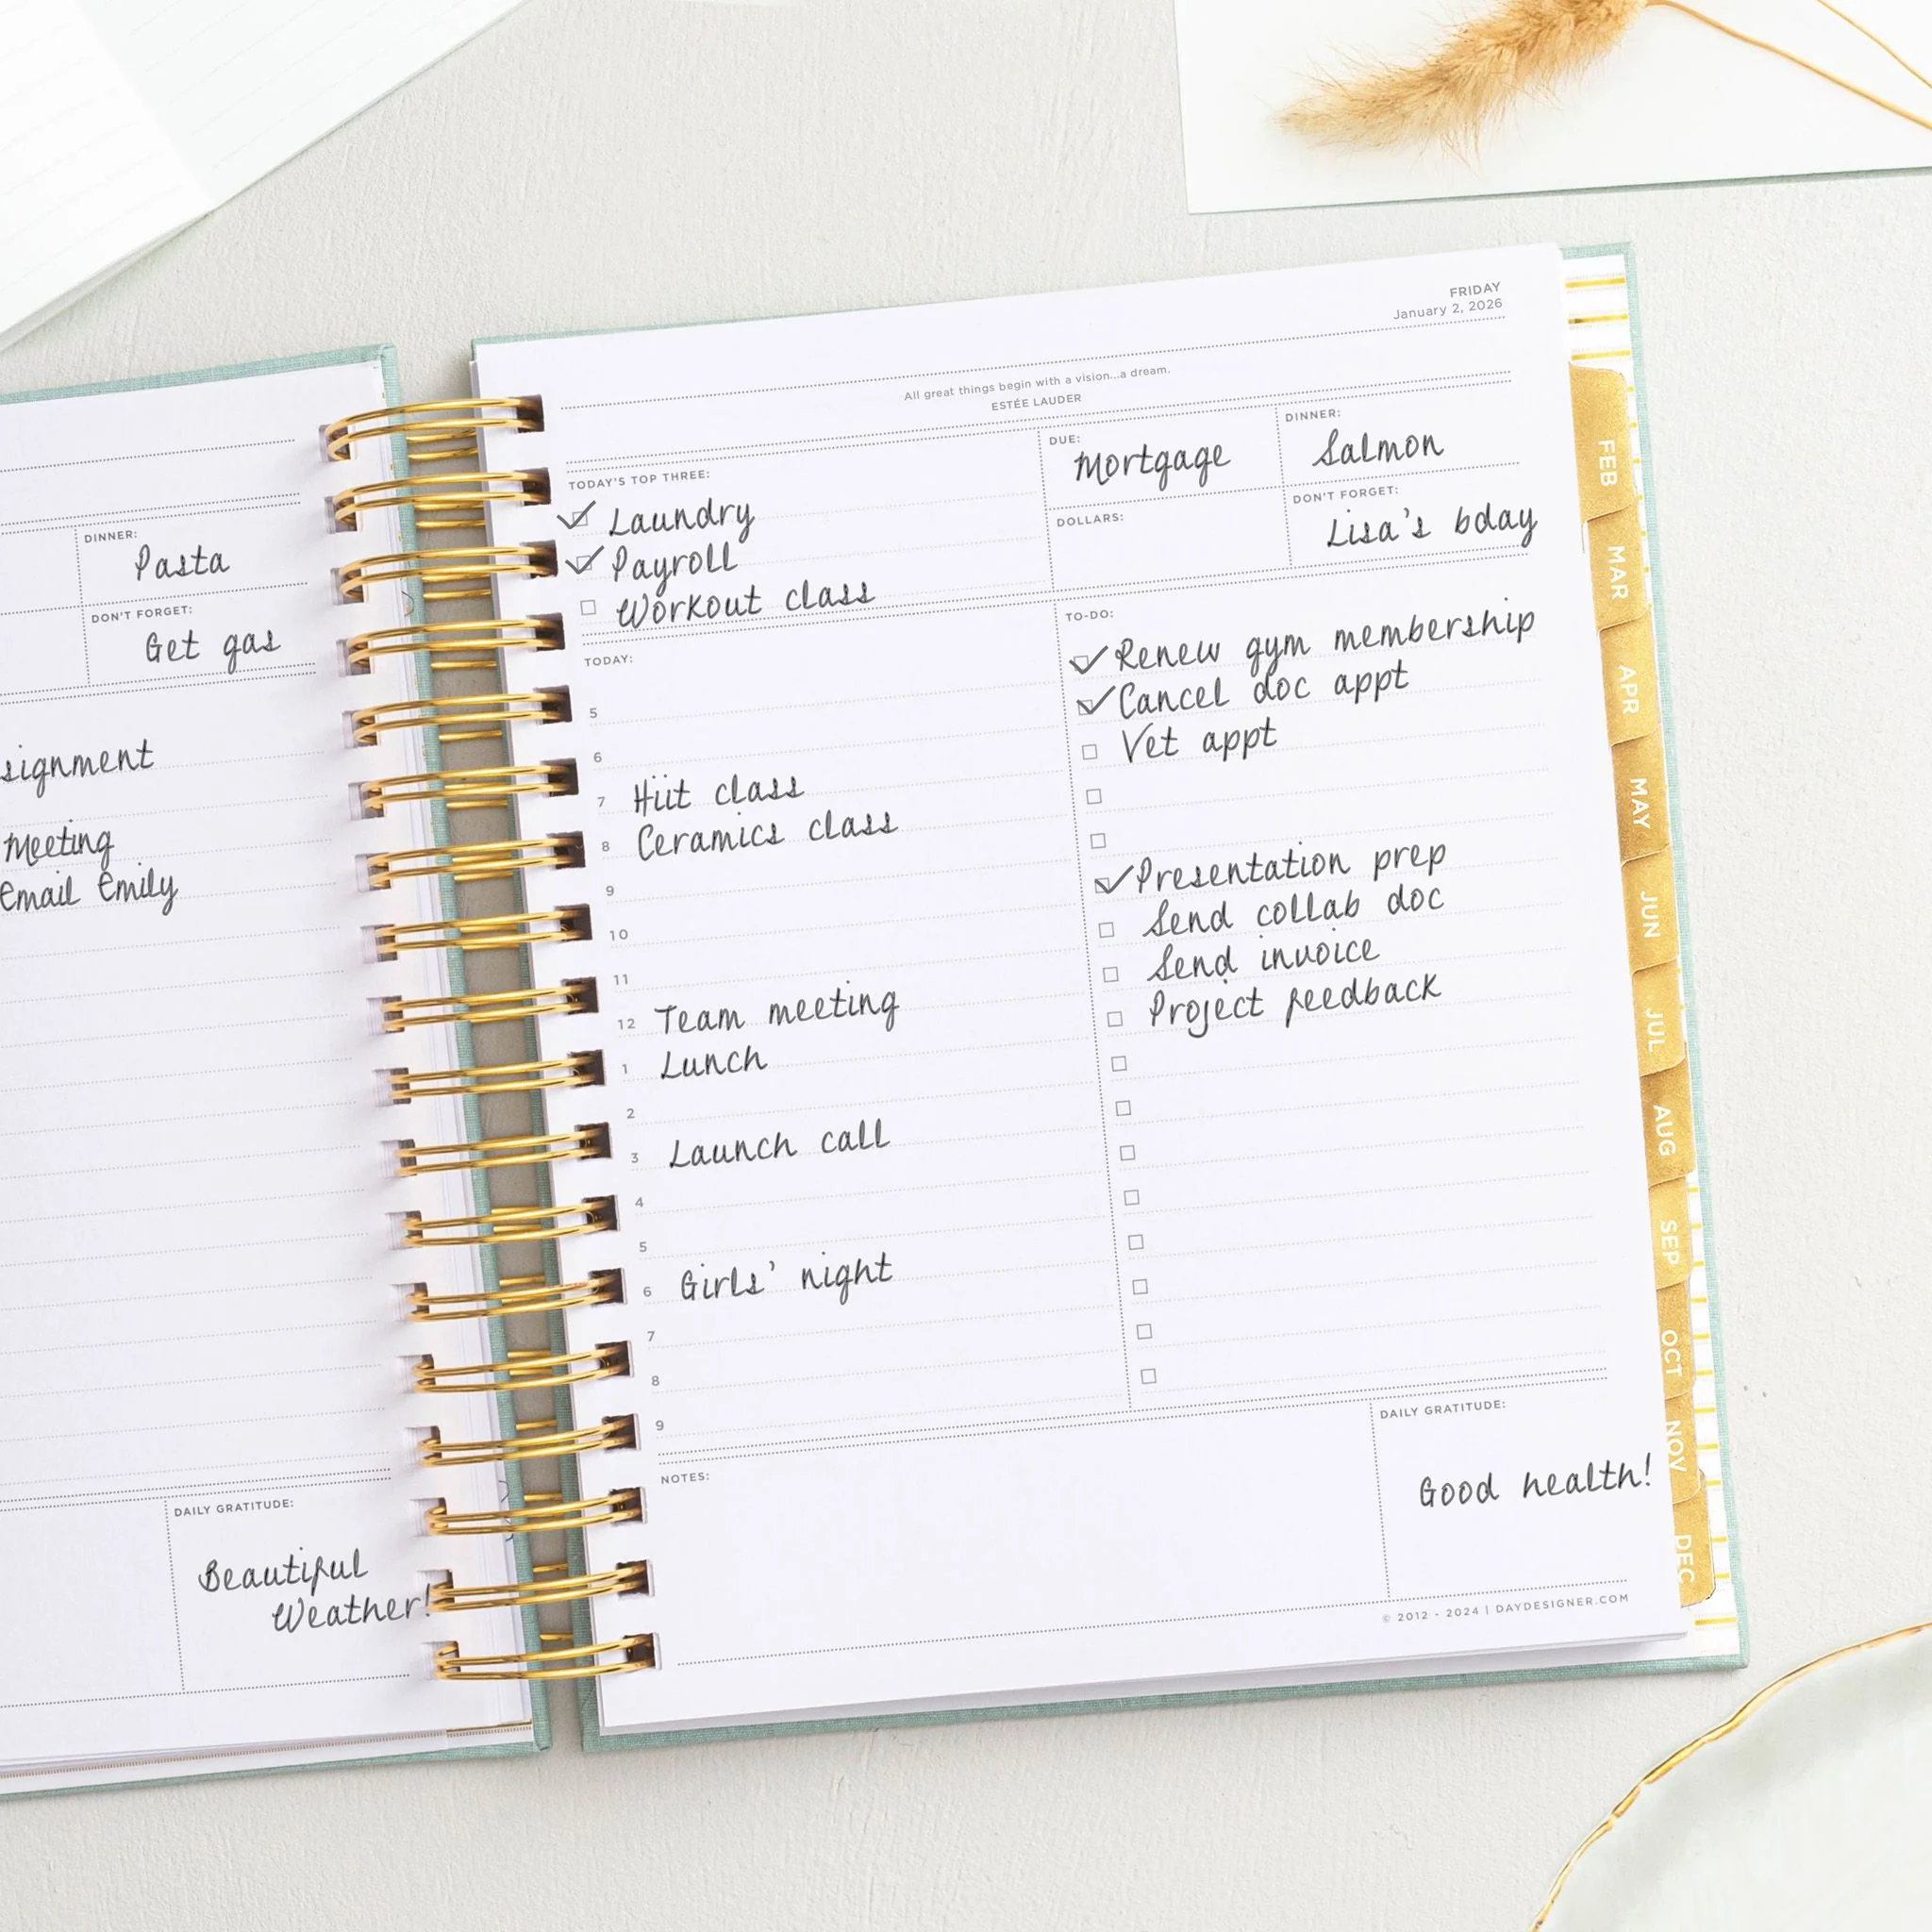 DINNER:
Pasta
DON'T FORGET:
Get gas
signment
Meeting
Email Emily
DAILY GRATITUDE:
Beautiful
Weather!
FRIDAY
January 2, 2026
All great things begin with a vision...a dream.
ESTÉE LAUDER
TODAY'S TOP THREE:
Laundry
Payroll
Workout class
DUE:
Mortgage
DOLLARS:
DINNER:
Salmon
DON'T FORGET:
Lisa's bday
TODAY:
5
6
7 Hiit class
8 Ceramics class
9
10
11
12 Team meeting
1 Lunch
2
3 Launch call
4
5
6 Girls' night
7
8
9
TO-DO:
Renew gym membership
Cancel doc appt
Vet appt
Presentation prep
Send collab doc
Send invoice
Project feedback
NOTES:
DAILY GRATITUDE:
Good health!
© 2012 - 2024 | DAYDESIGNER.COM
FEB
MAR
APR
MAY
JUN
JUL
AUG
SEP
OCT
NOV
DEC